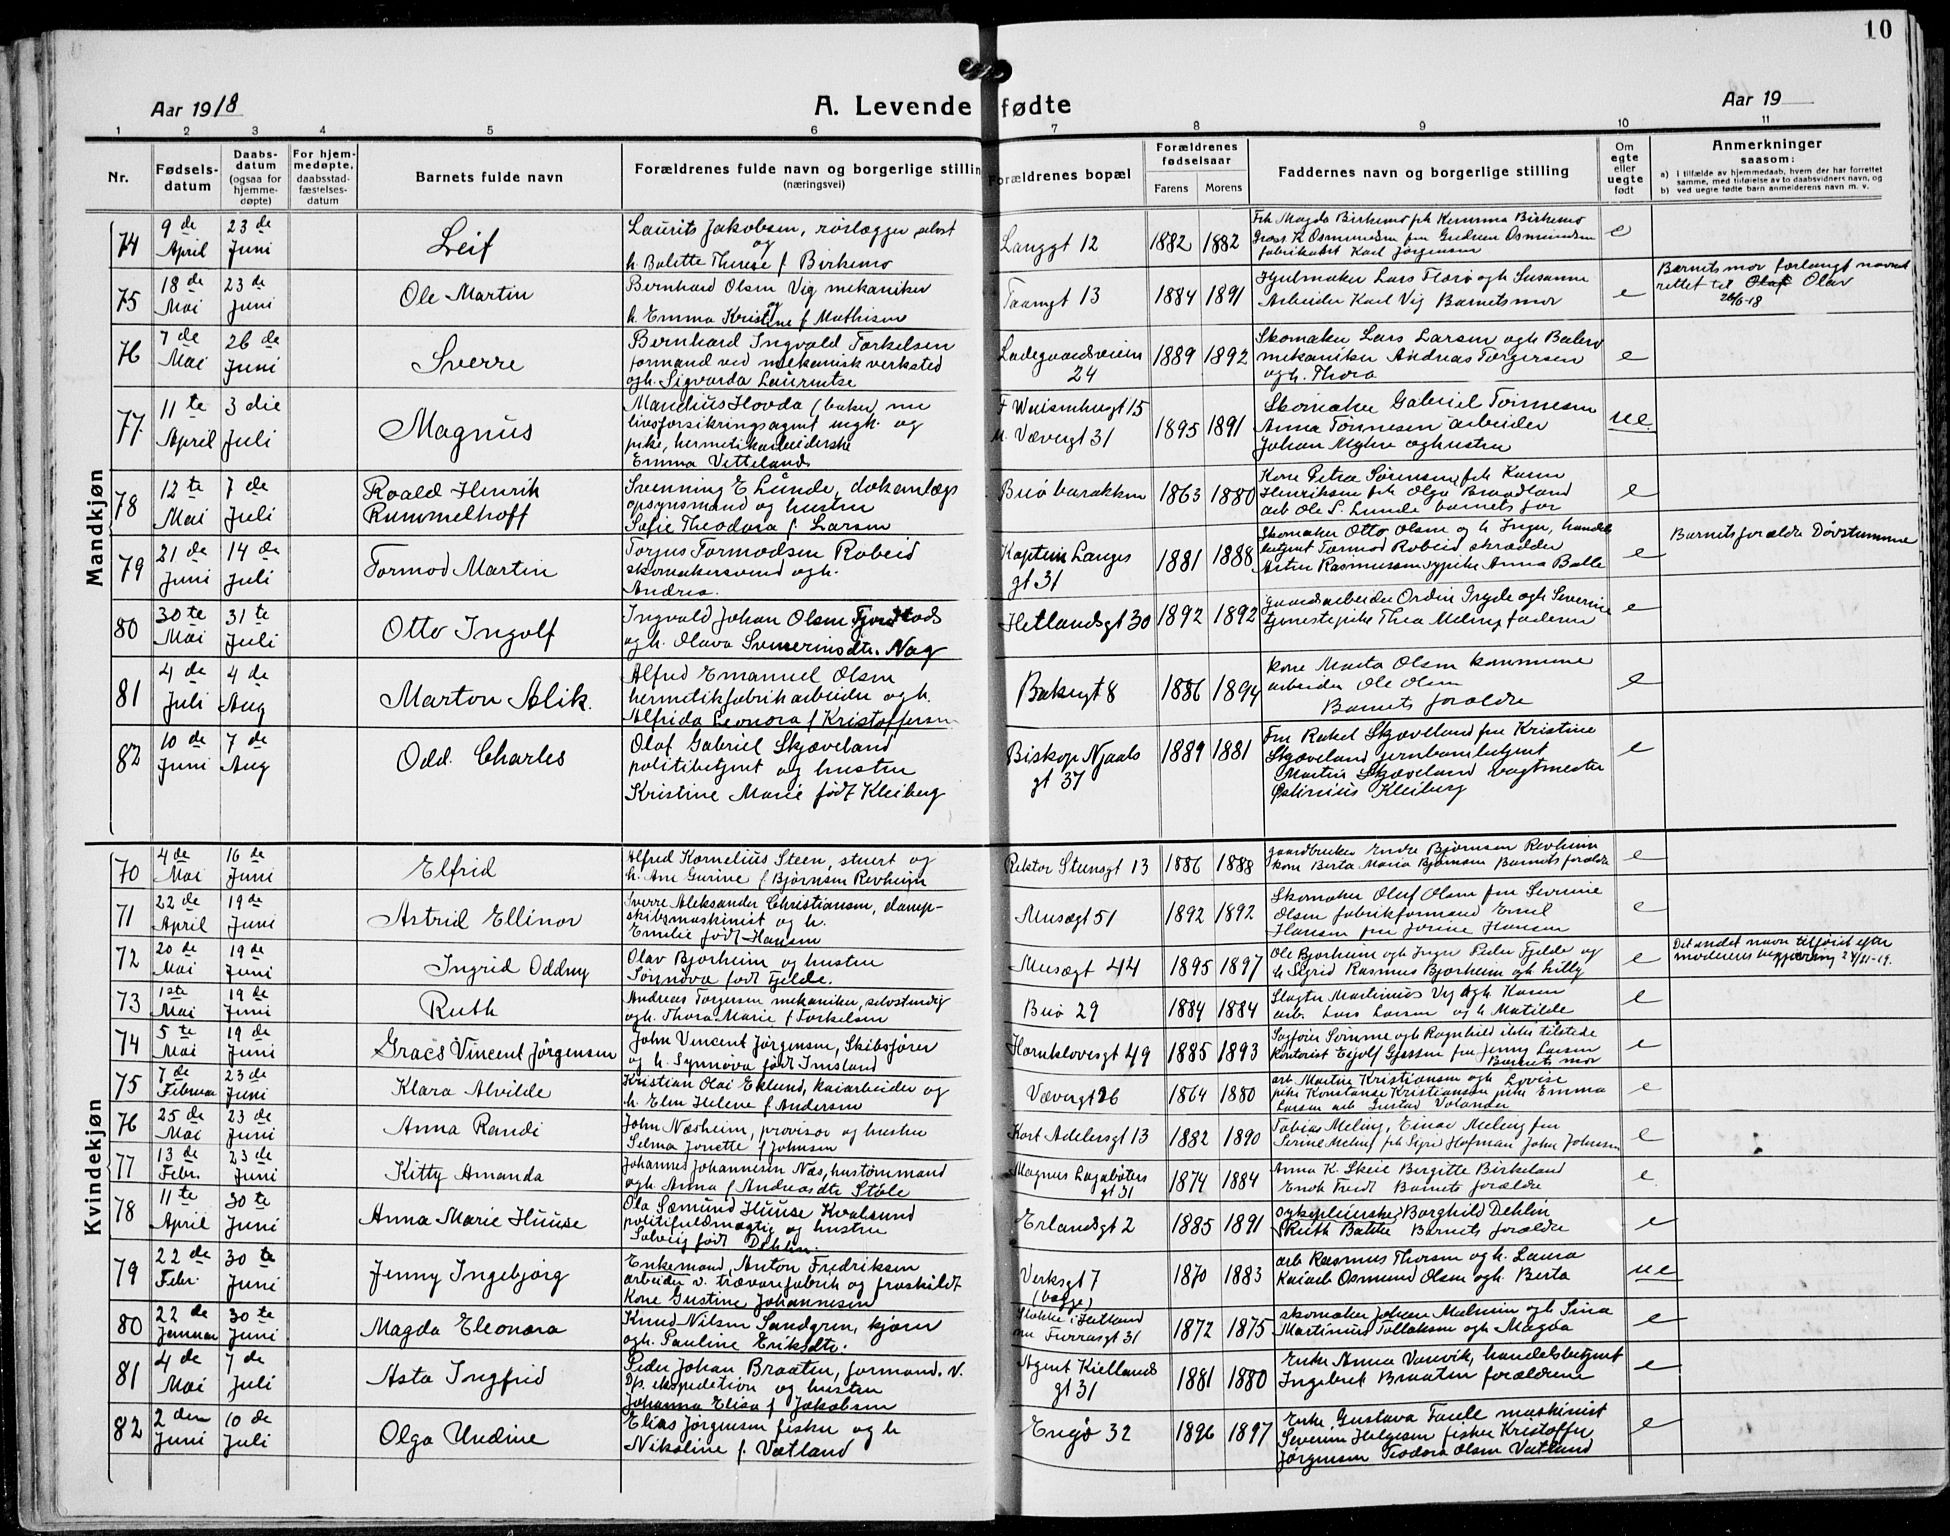 10
Aar 1918
A. Levende fødte
Aar 19
1 2 3 4 5 6 7 8 9 10 11
Nr.
Fødsels-
datum
Daabs-
datum
(ogsaa for
hjemme-
døpte)
For hjem-
medøpte,
daabsstad-
fæstelses-
datum
Barnets fulde navn
Forældrenes fulde navn og borgerlige stilling
(næringsvei)
Forældrenes bopæl
Forældrenes
fødselsaar
Farens Morens
Faddernes navn og borgerlige stilling
Om
egte
eller
uegte
født
Anmerkninger
saasom:
a) i tilfælde av hjemmedaab, hvem der har forrettet
samme, med tilføielse av to daabsvidners navn, og
b) ved uegte fødte barn anmelderens navn m. v.
Mandkjøn
74
9de
April
23de
Juni
Leif
Laurits Jakobsen, rørlægger selvst
og
h. Bolette Therese f. Birkemo
Langgt 12
1882 1882
Frk Magda Birkemo frk Kemma Birkemo
Gross K. Osmundsen fru Gudrun Osmundsen
fabrikarb Karl Jørgensen
e
75
18de
Mai
23de
Juni
Ole Martin
Bernhard Olsen Vig mekaniker
og
h. Emma Kristine f Mathisen
Taarngt 13
1884 1891
Hjulmaker Lars Florø ogh Susanne
Arbeider Karl Vig Barnets mor
e
Barnets mor forlangt navnet
rettet til Olaf Olav
26/6-18
76
7de
Mai
26de
Juni
Sverre
Bernhard Ingvald Torkelsen
formand ved mekanisk verksted
ogh. Sigvarda Lauritse
Ladegaardsveien
24
1889 1892
Skomaker Lars Larsen ogh
mekaniker Andreas Torgersen
ogh. Thora
e
77
11te
April
3die
Juli
Magnus
Mandius Hovda (baker) nu
livsforsikringsagent ungk. og
pike, hermetikarbeiderske
Emma Vetteland
F 15
M. Vævergt 31
1895 1891
Skomaker Gabriel Tønnesen
Anna Tønnesen arbeider
Johan Myhre oghustru
ue
78
12te
Mai
7de
Juli
Roald Henrik
Rummelhoff
Svenning E Lunde, dokanlægs
opsynsmand og hustru
Sofie Theodora f. Larsen
Buø barakken
1863 1880
Kone Petra Sørensen frk Karen
Henriksen frk Olga Braadland
arb Ole S. Lunde barnets far
e
79
21de
Juni
14de
Juli
Tormod Martin
Torgus Tormodsen Robeid
skomakersvend ogh.
Andrea.
Kaptein Langes
gt 31
1881 1888
Skomaker Otto Olsen og h Inger, handels
betjent Tormod Robeid skrædder
Rasmussen sypike Anna Balle
e
Barnets forældre Døvstumme
80
30te
Mai
31te
Juli
Otto Ingolf
Ingvald Johan Olsen
og h. Olava Nag
Hetlandsgt 30
1892 1892
gaardsarbeider Ordin Gryde ogh Severine
tjenestepike Thea Meling faderen
e
81
4de
Juli
4de
Aug
Marton Alik.
Alfred Emanuel Olsen
hermetikfabrikarbeider ogh.
Alfrida Leonora f Kristoffersen
Bakegt 8
1886 1894
kone Marta Olsen kommune
arbeider Ole Olsen
Barnets forældre
e
82
10de
Juni
7de
Aug
Odd Charles
Olaf Gabriel Skjæveland
politibetjent og hustru
Kristine Marie født Kleiberg
Biskop Njaals
gt 37
1889 1881
Fru Rakel Skjæveland fru Kristine
Skjæveland jernbanebetjent
Martin Skjæveland vagtmester
Kleiberg
e
Kvindekjøn
70
4de
Mai
16de
Juni
Elfrid
Alfred Kornelius Steen, stuert og
h. Ane Gurine f Bjørnsen Revheim
Rektor Steensgt 13
1886 1888
gaardbruker Endre Bjørnsen Revheim
kone Berta Maria Bjørnsen Barnets forældre
e
71
22de
April
19de
Juni
Astrid Ellinor
Sverre Aleksander Christiansen, damp-
skibsmaskinist og h.
Emilie født Hansen
Musægt 51
1892 1892
Skomaker Oluf Olsen fru Severine
Olsen fabrikformand Emil
Hansen fru Jorine Hansen
e
72
20de
Mai
19de
Juni
Ingrid Oddny
Olav Bjorheim og hustru
Sønnøva født Fjelde.
Musægt 44
1895 1897
Ole Bjorheim ogh Inger Peder Fjelde og
h Sigrid Rasmus Bjorheim ogh Lilly
e
Det andet navn tilføiet efter
moderens begjæring 24/11-19.
73
1ste
Mai
19de
Juni
Ruth
Andreas Torgersen mekaniker, selvstendig
ogh. Thora Marie f Torkelsen
Buø 29
1884 1884
Slagter Martinius Vig ogh. Karen
arb. Lars Larsen og h Matilde
e
74
5te
Mai
19de
Juni
Gracs Vincent Jørgensen
John Vincent Jørgensen, Skibsfører
og h. Synnøva født Imsland
Hornklovesgt 49
1885 1893
Sagfører Sømme ogh Ragnhild ikke tilstede
Kontorist Eyolf Gjessen fru Jenny Larsen
Barnets mor
e
75
7de
Februar
23de
Juni
Klara Alvilde
Kristian Olai Eklund, kaiarbeider og
h. Elen Helene f Andersen
Vævergt 26
1864 1880
arb Martin Kristiansen ogh Lovise
pike Konstanse Kristiansen pike Emma
Larsen arb Gustav Volander
e
76
25de
Mai
23de
Juni
Anna Randi
John Næsheim, provisor og hustru
Selma Jonette f Johnsen
Kort Adelersgt 13
1882 1890
Tobias Meling, Einar Meling fru
Serine Meling frk Signe Hofman John Johnsen
e
77
13de
Febr.
23de
Juni
Kitty Amanda
Johannes Johannesen Næs, hustømmermand
ogh Anna f Andreasdtr Støle
Magnus Lagabøters
gt 31
1874 1884
Anna K. Skeie Birgitte Birkeland
Enok Tredt Barnets forældre
e
78
11te
April
30te
Juni
Anna Marie Huuse
Ola Sæmund Huuse Kvalsund
politifuldmægtig og hustru
Solveig født Dehlin.
Erlandsgt 2
1885 1891
sykepleierske Borghild Dehlin
Ruth Bakke Barnets forældre
e
79
22de
Febr.
30te
Juni
Jenny Ingebjørg
Enkemand, Anton Fredriksen
arbeider v. trævarefabrik og fraskildt
Kone Gustine Johannesen
Verksgt 7
(begge)
1870 1883
arb Rasmus Thorsen og h. Laura
Kaiarb Osmund Olsen ogh. Berta
ue
80
22de
Januar
30te
Juni
Magda Eleonora
Knud Nilsen Sandgren, kjører
ogh. Pauline Eriksdtr.
Stokke i Hetland
nu Furrasgt 31
1872 1875
skomaker Johan Malmin ogh Sina
Martinius Tollaksen ogh Magda
e
81
4de
Mai
7de
Juli
Asta Ingfrid
Peder Johan Braaten, formand. v.
D/s. ekspedition og hustru
Johanna Elisa f Jakobsen
Agent Kiellands
gt 31
1881 1880
Enke Anna Vanvik, handelsbetjent
Ingebret Braaten forældrene
e
82
2den
Juni
10de
Juli
Olga Undine
Elias Jørgensen fisker og h
Nikoline f. Vatland
Engø 32
1896 1897
Enke Gustava Faule maskinist
Severin Helgesen fisker Kristoffer
Jørgensen Teodora Olsen Vatland
e